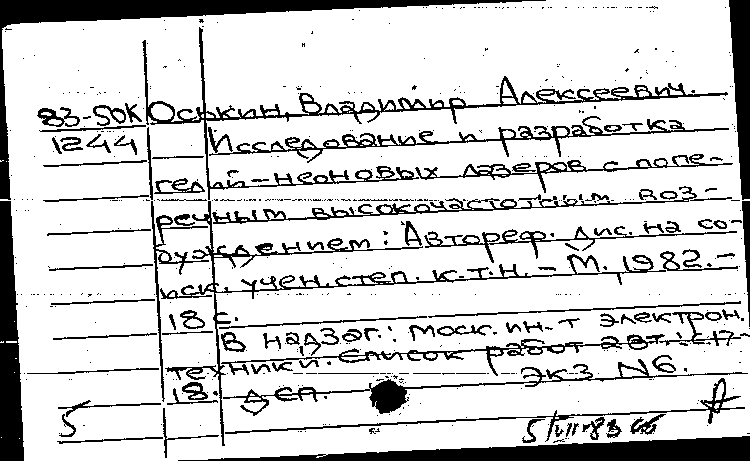 83-50К Оськин, Владимир Алексеевич.
1244 Исследование и разработка
гелий-неоновых лазеров с попе-
речным высокочастотным воз-
буждением: Автореф. дис. на со-
иск. учен. степ. к.т.н. - М., 1982.-
18 с.
В надзаг.: Моск. ин-т электрон.
техники. Список работ авт.: с. 17-
18. ДСП. Экз. N6.
5
5/VII-83